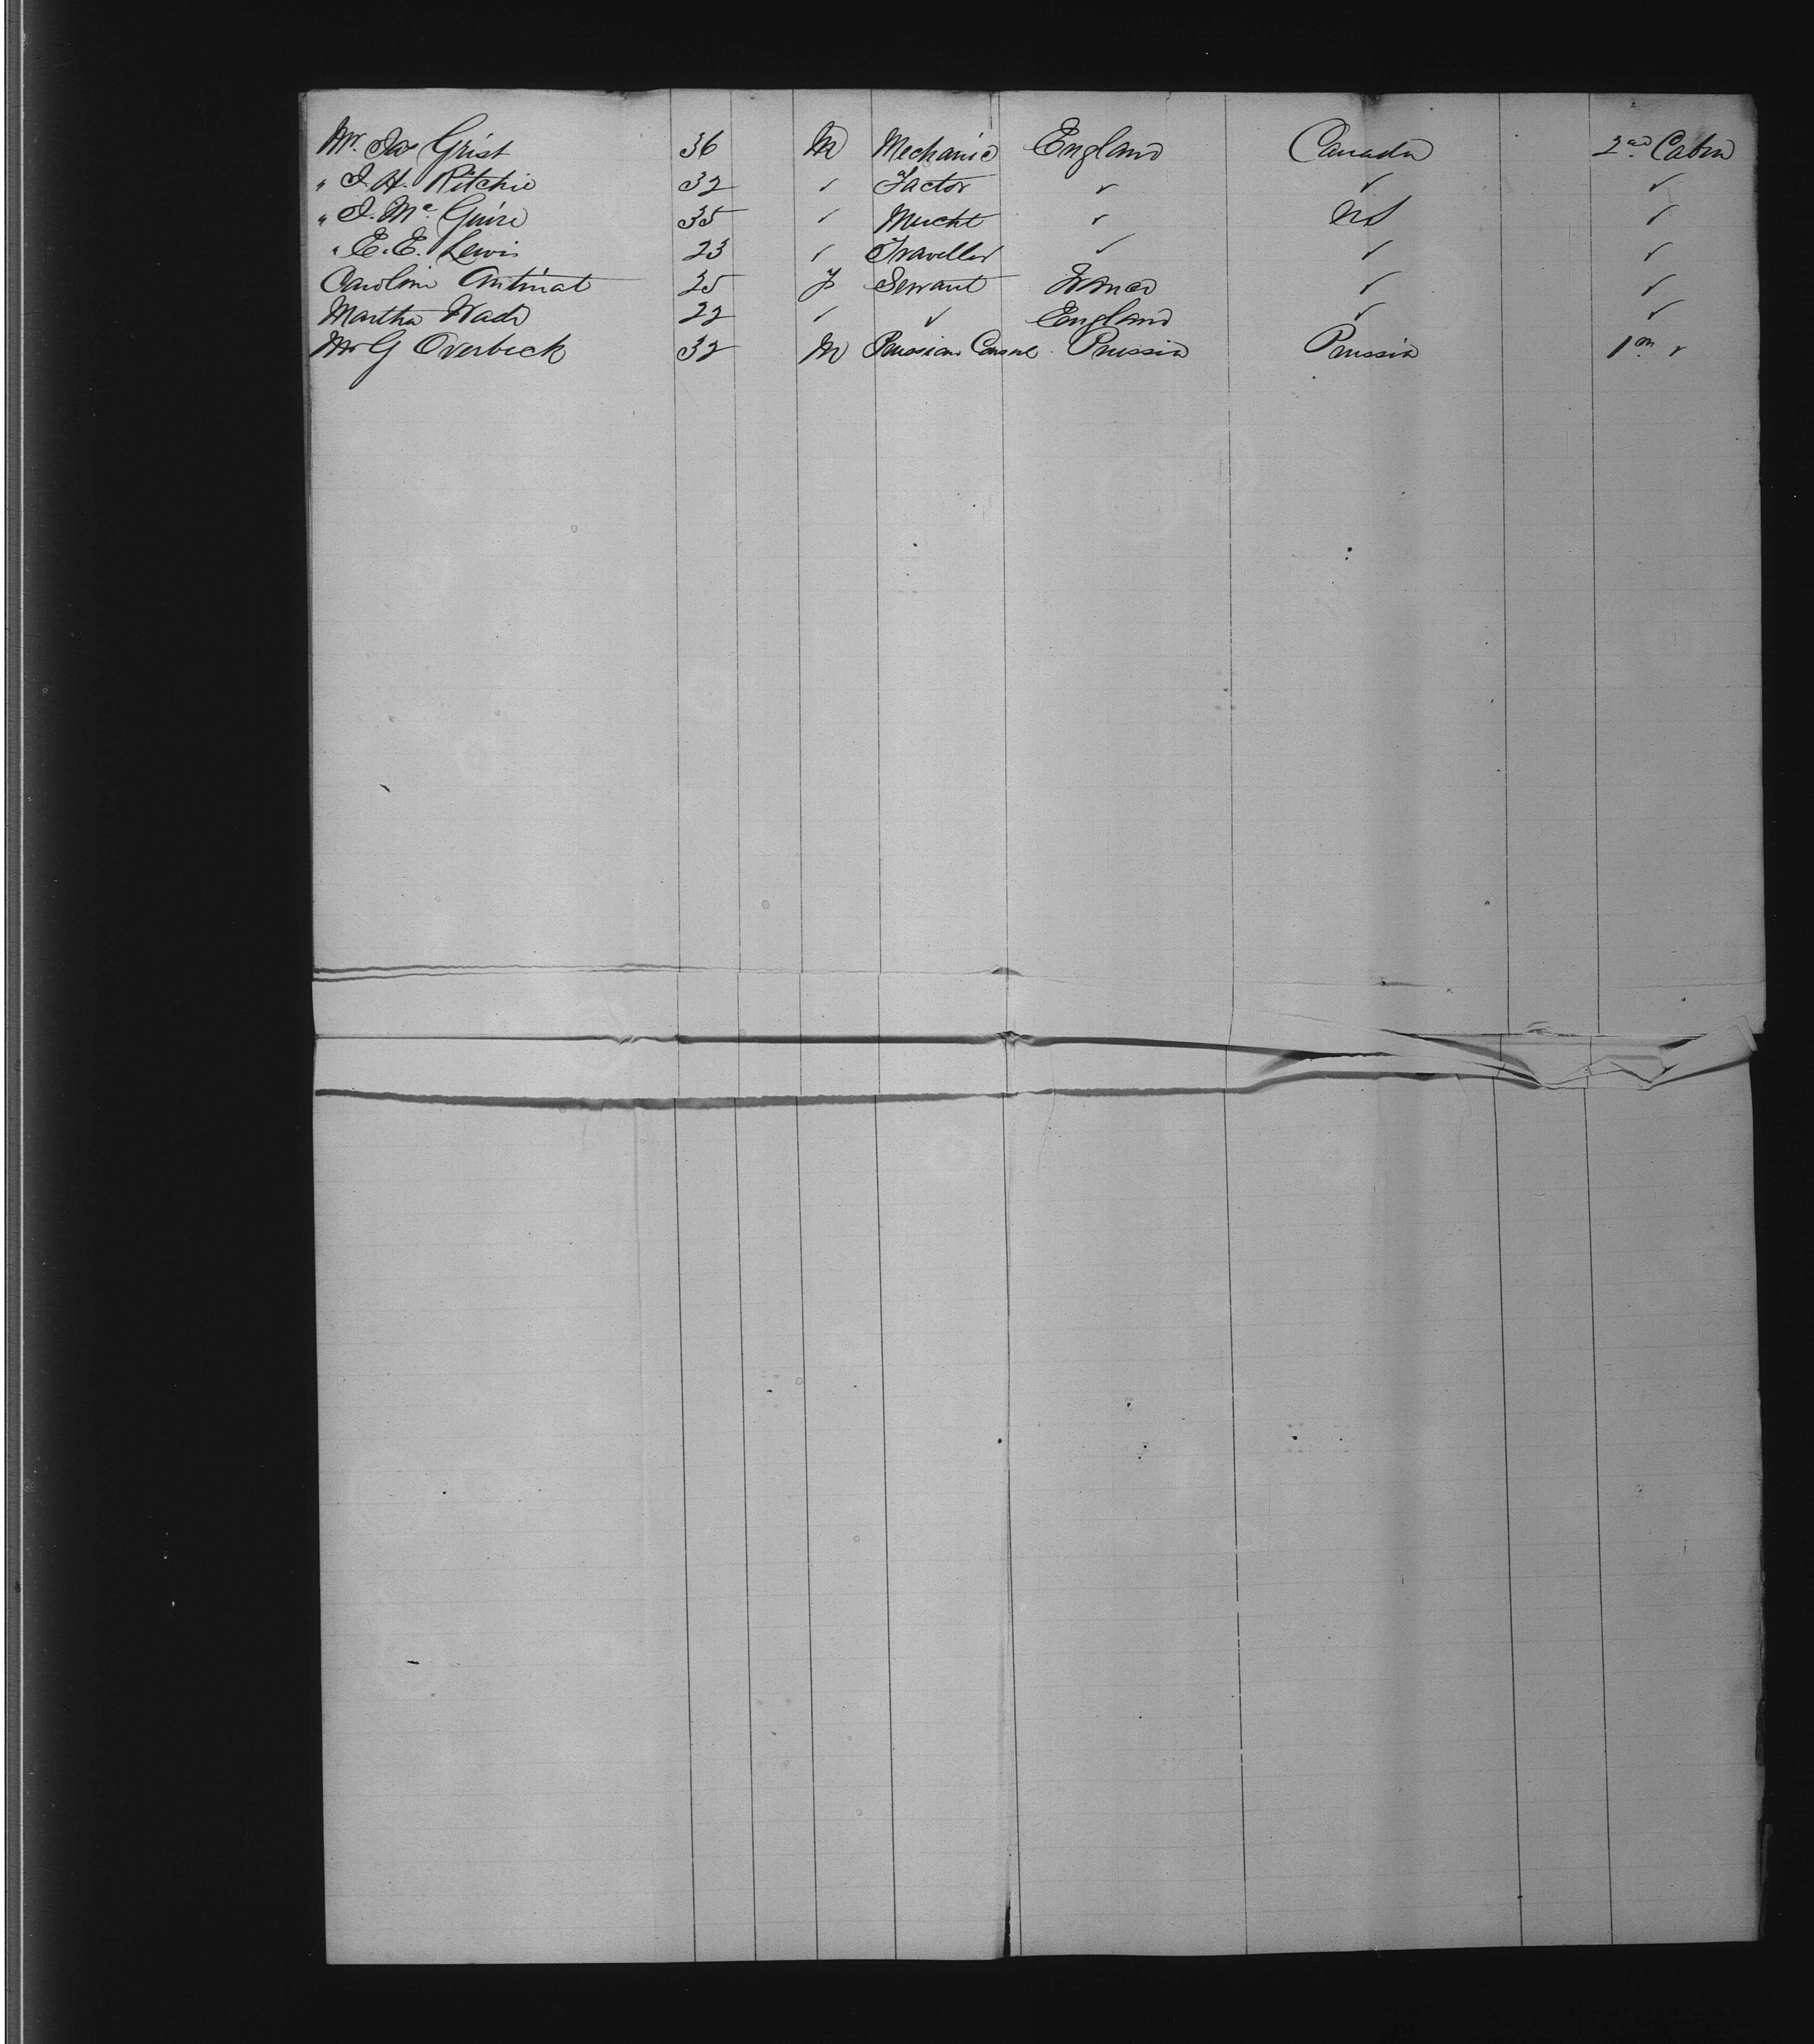 Mr. Jas Grist 36 M Mechanic England Canada 2nd Cabin
" J. H. Ritchie 32 ✓ Factor ✓ ✓ ✓
" J. Mc Guire 35 ✓ Mercht ✓ US ✓
" E. E. Lewis 23 ✓ Traveller ✓ ✓ ✓
Caroline Antinat 25 F Servant France ✓ ✓
Martha Wade 22 ✓ ✓ England ✓ ✓
Mr G Overbeck 32 M Prussian Consul Prussia Prussia 1 ✓